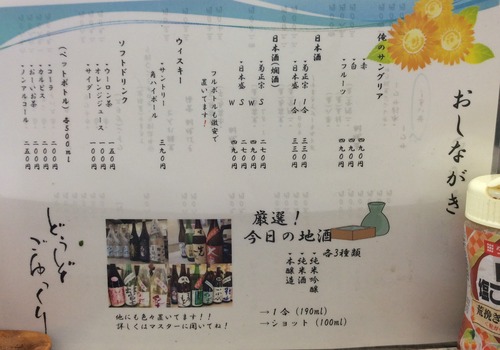 おしながき
俺のサングリア
・赤 四九〇円
・白 四九〇円
・フルーツ 四九〇円
日本酒
・菊正宗 1合 三三〇円
・日本盛 1合 三三〇円
日本酒(燗酒)
・菊正宗 S 二七〇円
W 四九〇円
・日本盛 S 二七〇円
W 四九〇円
フルボトルも激安で
置いてます!
ウィスキー
・サントリー
角ハイボール 三九〇円
ソフトドリンク
・ウーロン茶 一五〇円
・オレンジジュース 一〇〇円
・サイダー 一〇〇円
(ペットボトル)各500ml
・コーラ 二〇〇円
・カルピス 二〇〇円
・おーいお茶 二〇〇円
・ノンアルコール 二五〇円
どうぞ
ごゆっくり
厳選!
今日の地酒
各3種類
・純米吟醸
・純米酒
・本醸造
→1合(190ml)
→ショット(100ml)
他にも色々置いてます!!
詳しくはマスターに聞いてね!
荒挽き